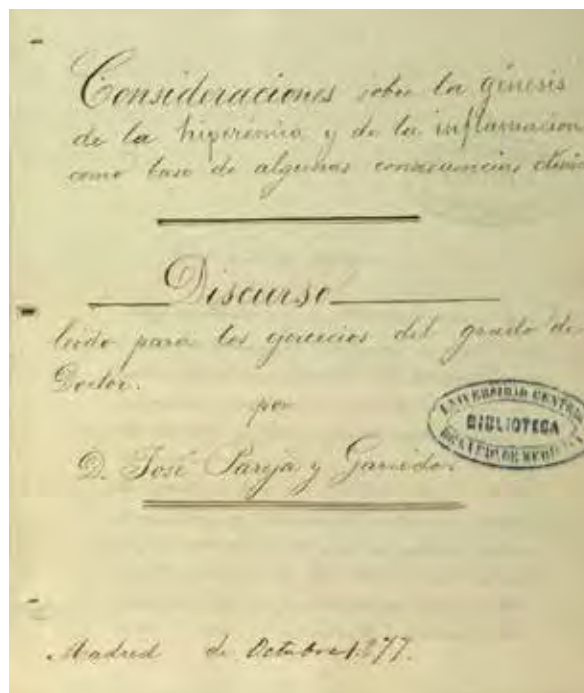 Consideraciones sobre la génesis
de la hiperémia y de la inflamacion
como base de algunas consecuencias
Discurso
leido para los ejercicios del grado de
Doctor.
por
D. José Pareja y Garrido.
UNIVERSIDAD CENTRAL
BIBLIOTECA
Madrid de Octubre 1877.